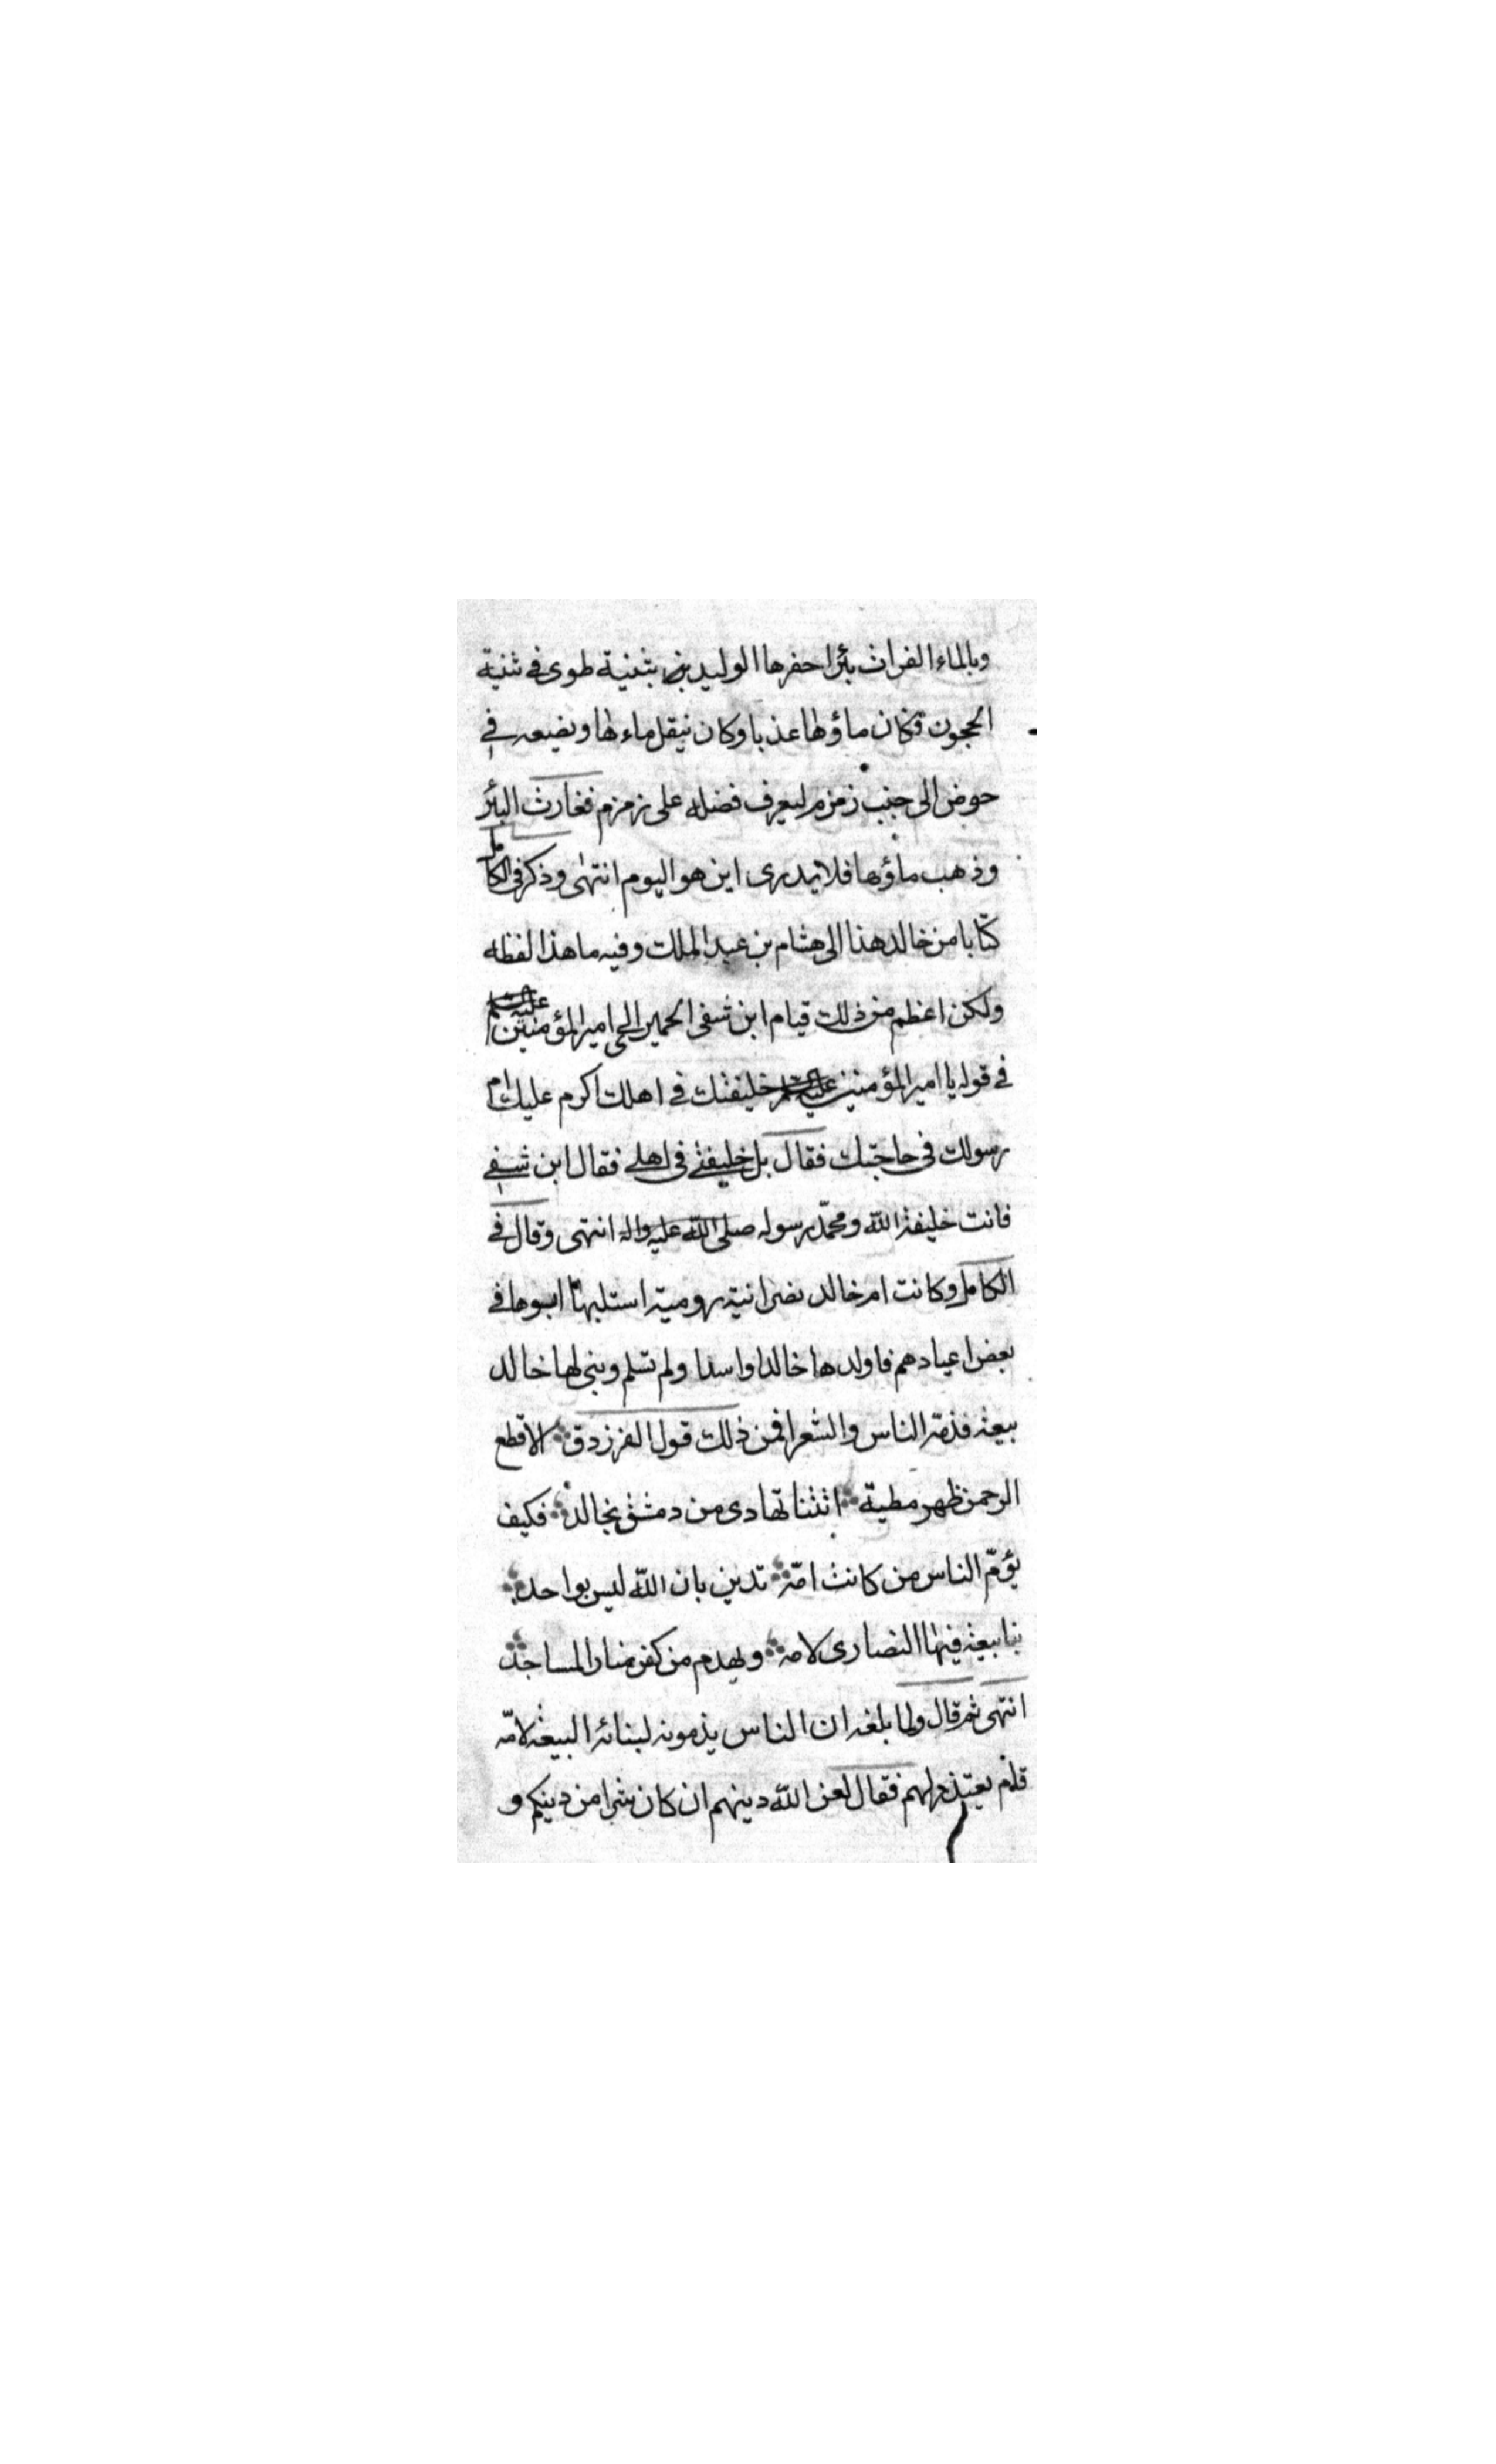 وبالماء الفرات بئرا حفرها الوليد بثنية طوى في ثنية
الحجون فكان ماؤها عذبا وكان ينقل ماءها ويضيعه في
حوض الى جنب زمزم ليعرف فضله على زمزم فغارت البئر
وذهب ماؤها فلا يدرى اين هو اليوم انتهى وذكر في الكامل
كتابا من خالد هذا الى هشام بن عبد الملك وفيه ما هذا لفظه
ولكن اعظم من ذلك قيام ابن شفى الحميرى الى امير المؤمنين
في قوله يا امير المؤمنين خليفتك في اهلك اكرم عليك ام
رسولك في حاجتك فقال بل خليفتي في اهلي فقال ابن شفي
فانت خليفة الله ومحمّد رسوله صلى الله عليه واله انتهى وقال في
الكامل وكانت ام خالد نصرانية رومية استلبها ابوها في
بعض اعيادهم فاولدها خالدا واسدا ولم تسلم وبنى لها خالد
بيعة فذمّه الناس والشعرا فمن ذلك قول الفرزدق الا قطع
الرحمن ظهر مطية اتتنا تهادى من دمشق بخالد فكيف
يؤمّ الناس من كانت امّه تدين بان الله ليس بواحد
بنا بيعة فيها النصارى لامه ويهدم من كفر منار المساجد
انتهى ثم قال ولما بلغه ان الناس يذمونه لبنائه البيعة لامّه
قام يعتذر لهم فقال لعن الله دينهم ان كان شرا من دينكم و